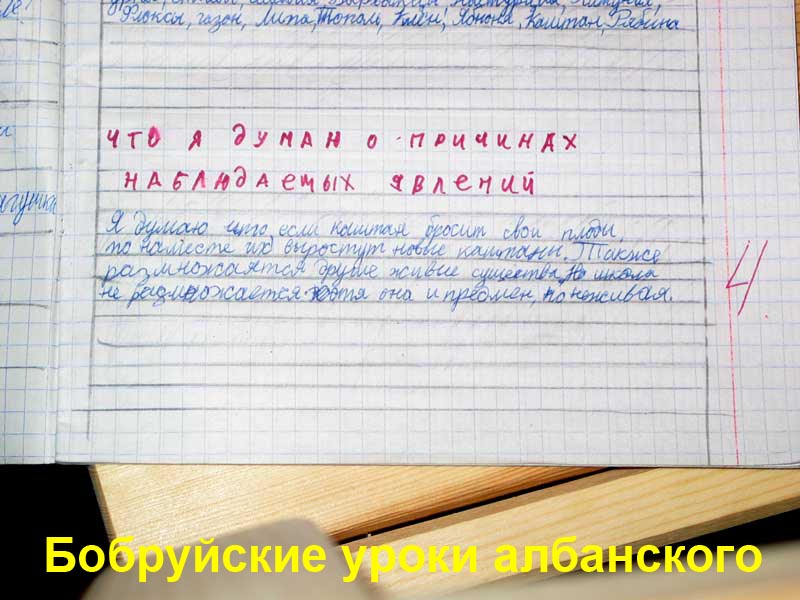 Флоксы, газон, Липа, Тополь, Клён, Яблоня, Каштан, Рябина
ЧТО Я ДУМАЮ О ПРИЧИНАХ
НАБЛЮДАЕМЫХ ЯВЛЕНИЙ
Я думаю что если каштан бросит свои плоды,
то на месте их выростут новые каштаны. Также
размножаятся другие живые существа, но школа
не размножается хотя она и предмен, но неживая.
4
Бобруйские уроки албанского